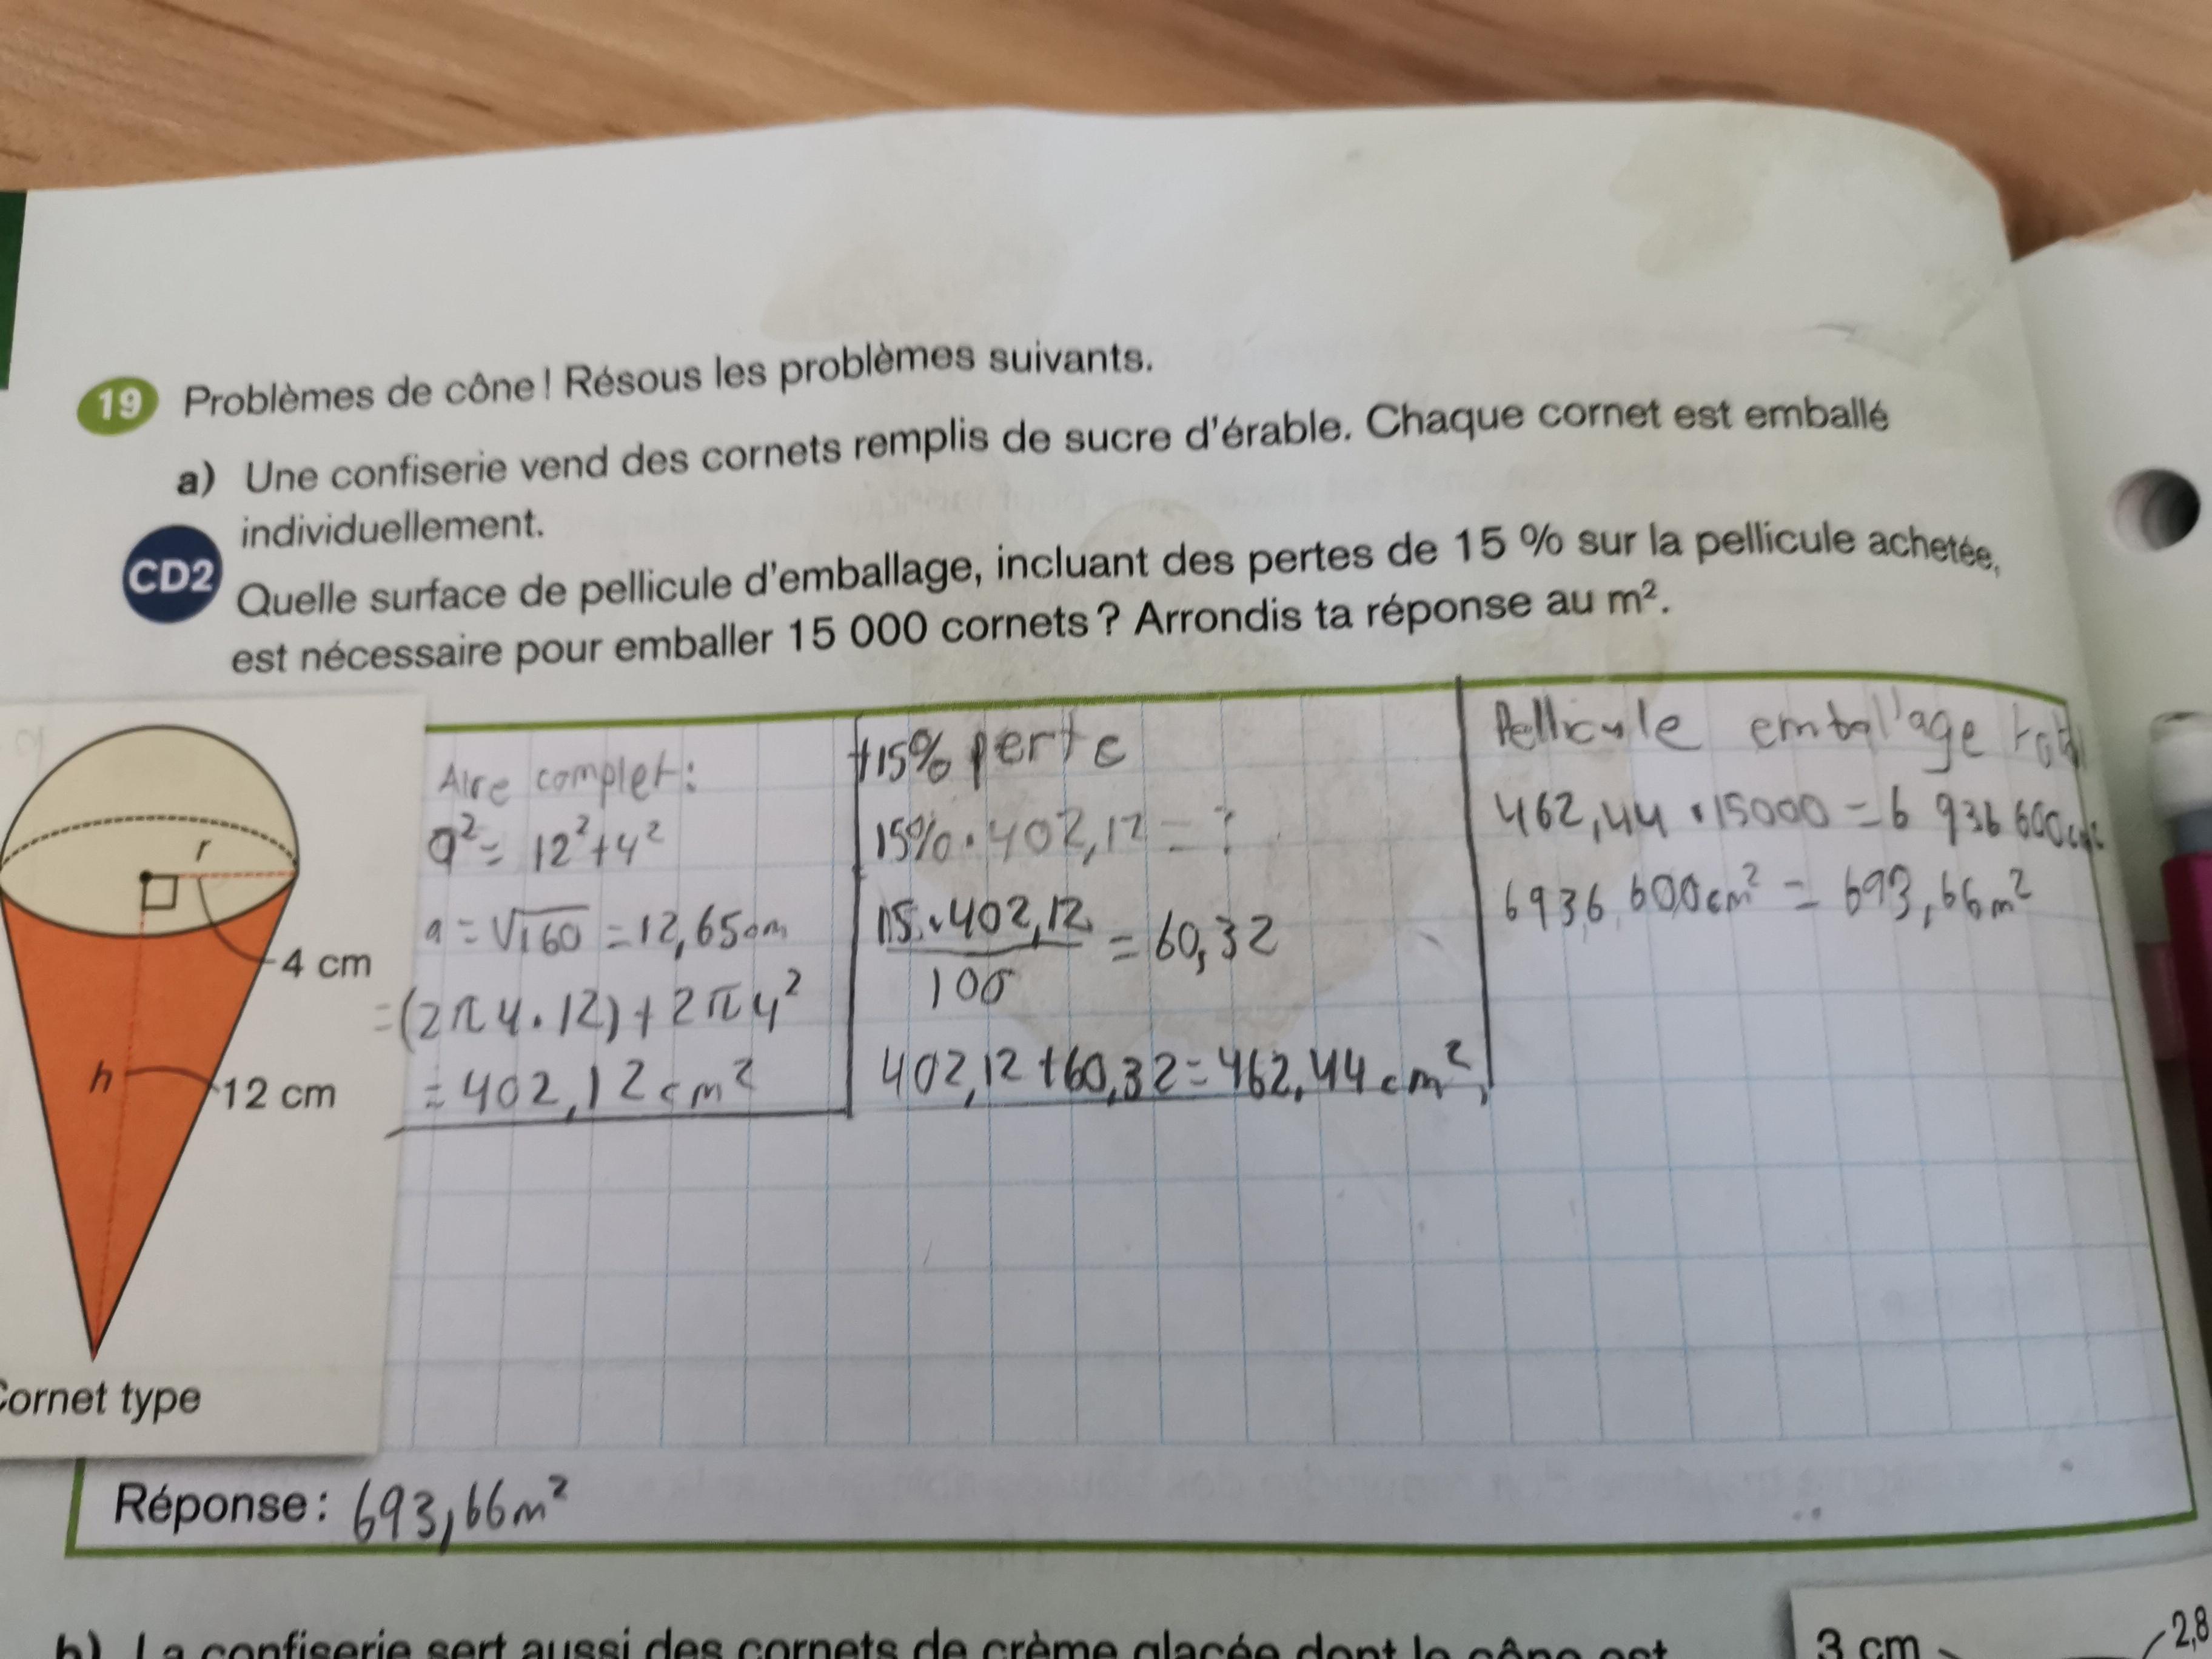 19 Problèmes de cône! Résous les problèmes suivants.
a) Une confiserie vend des cornets remplis de sucre d'érable. Chaque cornet est emballé
individuellement.
CD2
Quelle surface de pellicule d'emballage, incluant des pertes de 15 % sur la pellicule achetée,
est nécessaire pour emballer 15 000 cornets? Arrondis ta réponse au m².
r
4 cm
h
12 cm
Cornet type
Aire complet:
a² = 12² + 4²
a = √160 = 12,65cm
= (2π4 · 12) + 2π4²
= 402,12 cm²
+15% perte
15% · 402,12 = ?
15 · 402,12 / 100 = 60,32
402,12 + 60,32 = 462,44 cm²
Pellicule embal'age
462,44 · 15000 = 6 936 600
6936 600cm² = 693,66m²
Réponse : 693,66m²
b) La confiserie sert aussi des cornets de crème glacée dont le cône est
3 cm
2,8